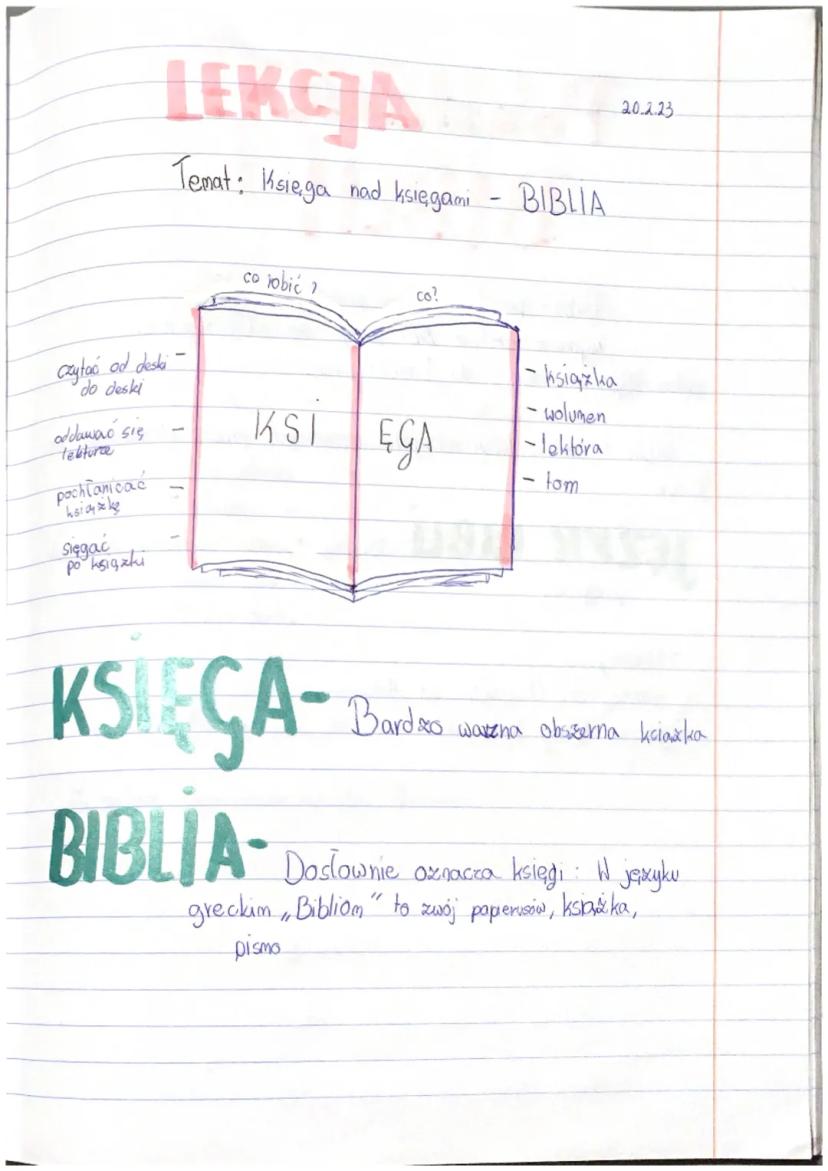 LEKCJA
20.2.23
Temat: Księga nad księgami - BIBLIA
co robić?
co?
czytać od deski -
do deski
oddawać się -
lekturze
pochłaniać -
książkę
sięgać -
po książki
KSI
ĘGA
- książka
- wolumen
- lektóra
- tom
KSIĘGA- Bardzo ważna obszerna ksiazka
BIBLIA- Dosłownie oznacza księgi: W języku
greckim „Bibliom" to zwój papierusów, książka,
pismo